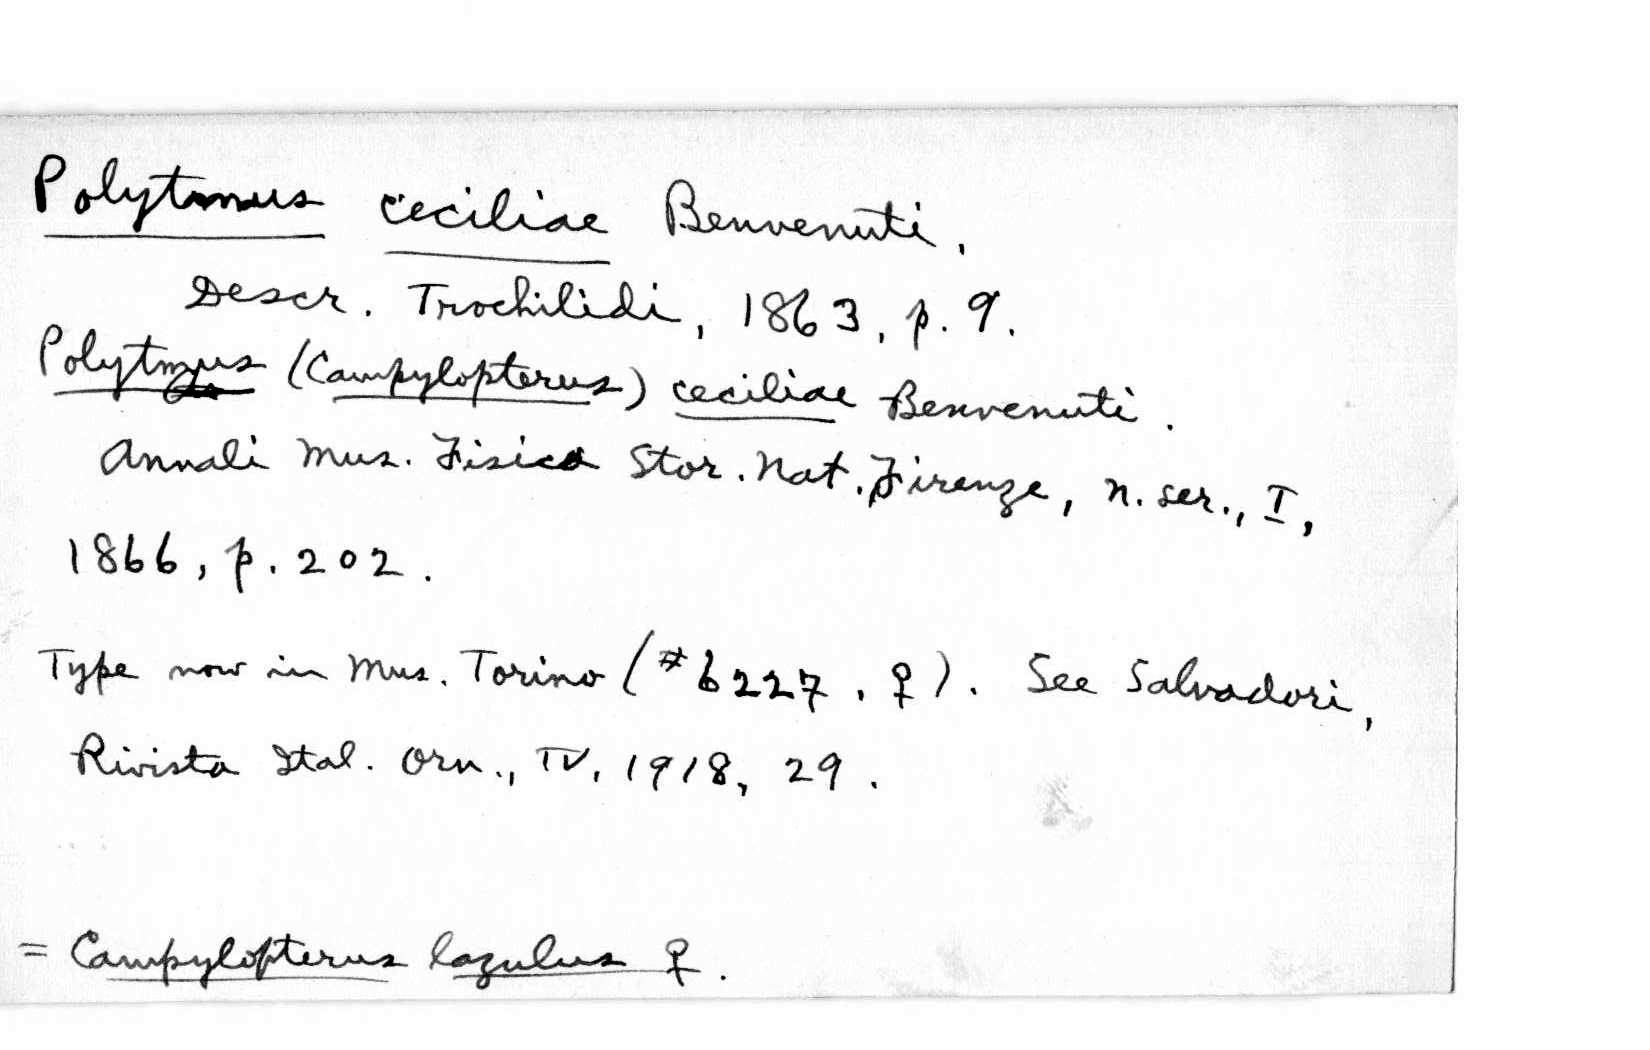 Polytmus ceciliae Benvenuti,
Descr. Trochilidi, 1863, p. 9.
Polytmus (Campylopterus) ceciliae Benvenuti.
Annali Mus. Fisica Stor. Nat. Firenze, n. ser., I,
1866, p. 202.
Type now in Mus. Torino (#6227, ♀). See Salvadori,
Rivista Ital. Orn., IV, 1918, 29.
= Campylopterus lazulus ♀.